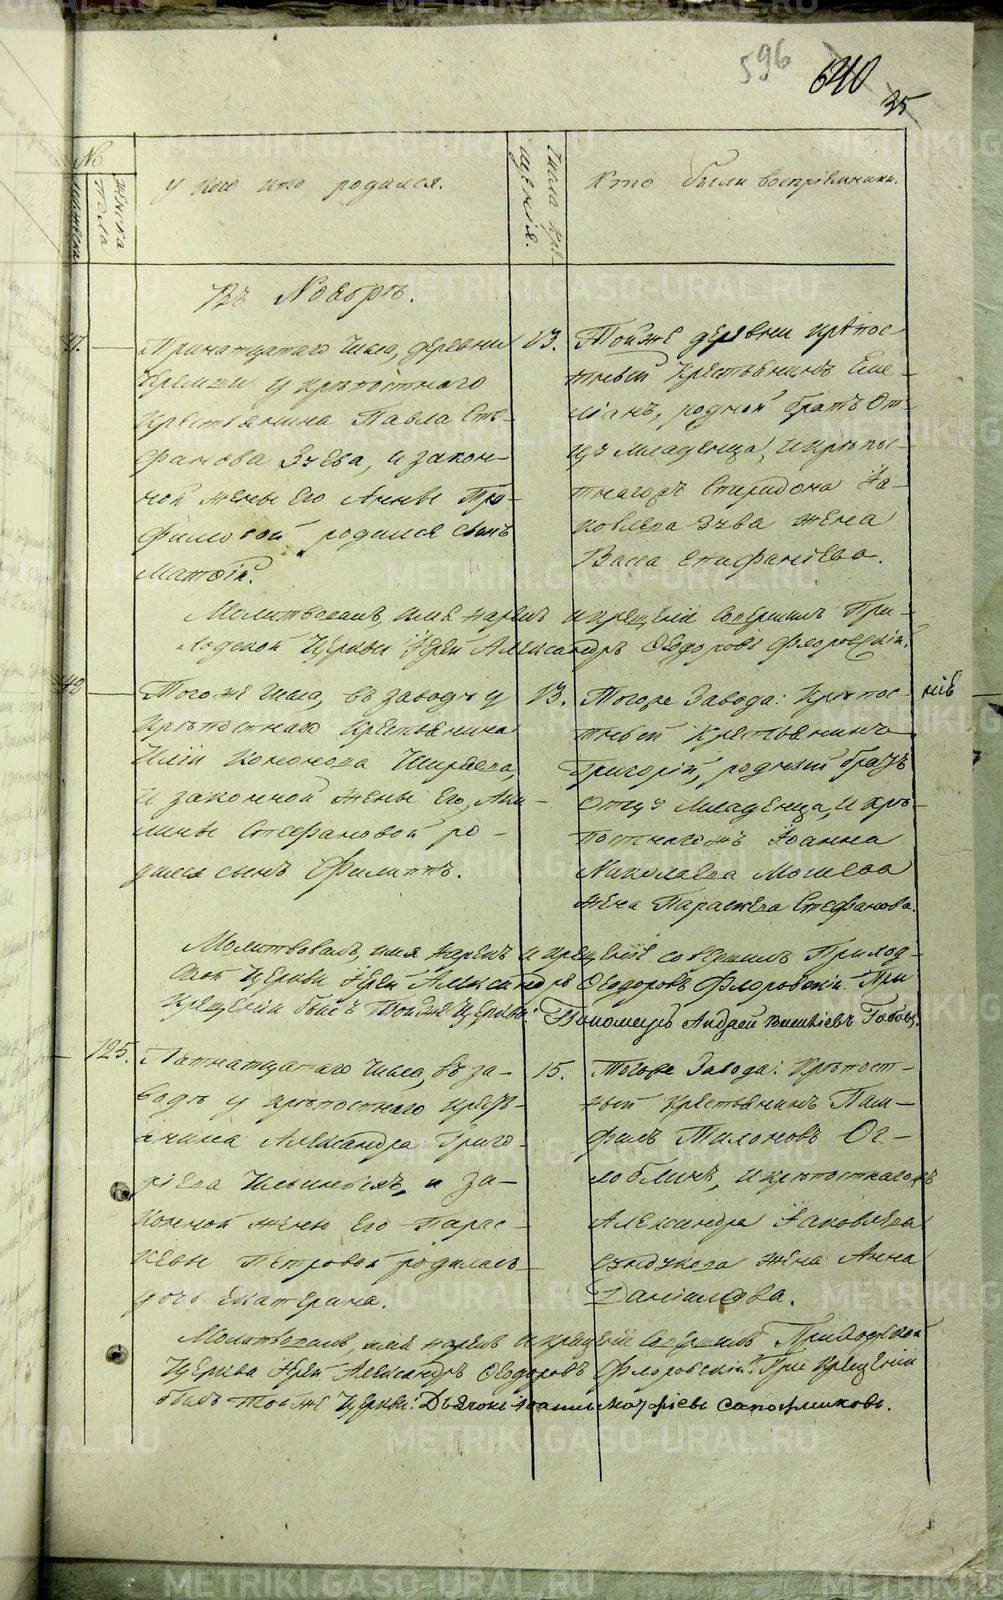 596
640
35
№
мужеска
женска
пола
у кого кто родился.
Числа кре-
щенія.
Кто были воспріемники.
Въ Ноябрѣ.
47.
Тринатцатаго Числа, деревни
у крѣпостнаго
Крестьянина Павла Сте-
фанова Зуева, и закон-
ной жены Его Анны Тро-
фимовой родился сынъ
Матѳій.
13.
Тойже деревни крѣпос
тный Крестьянинъ Еме-
ліанъ, родной братъ От-
ца младенца, и крѣпос-
тнагожъ Спиридона Яа-
ковлева Зуева жена
Васса Епифаніева.
Молитвовалъ, имя нарекъ и крещеніе совершилъ При-
ходской Церкви Іерей Александръ Ѳеодоровъ Флоровскій.
48
Тогоже Числа, въ заводѣ у
крѣпостнаго Крестьянина
Иліи Кононова Ширяева,
и законной жены Его, Аки-
лины Стефановой ро-
дился сынъ Филиппъ.
13.
Тогоже Завода: Крѣпос-
тный Крестьянинъ
Григорій, родный братъ
отца младенца, и крѣ-
постнагожъ Іоанна
Николаева
жена Параскева Стефанова.
Молитвовалъ, имя нарекъ и крещеніе совершилъ Приход-
ской Церкви Іерей Александръ Ѳеодоровъ Флоровскій. При
крещеніи былъ Тойже Церкви: Пономарь Андрей
125.
Пятнатцатаго Числа, въ за-
водѣ у крѣпостнаго крест-
янина Александра Григо-
ріева и за-
конной жены Его Парас-
кевы Петровой родилась
дочь Екатерина.
15.
Тогоже Завода: Крѣпост-
ный Крестьянинъ Пам-
филъ Ог-
лоблинъ, и крѣпостнагожъ
Александра Іаковлева
жена Анна
Даніилова.
Молитвовалъ, имя нарекъ и крещеніе совершилъ Приходской
Церкви Іерей Александръ Ѳеодоровъ Флоровскій. При крещеніи
былъ тойже Церкви: Дьячокъ Іоаннъ Сапожниковъ.
METRIKI.GASO-URAL.RU